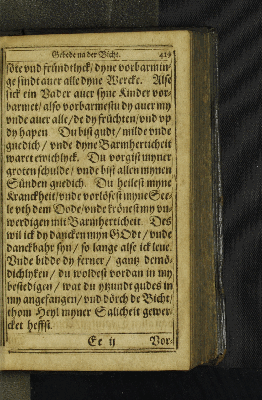 Gebede na der Bicht. 419
söte vnd fründtlyck / dyne vorbarmin-
ge sindt auer alle dyne Wercke. Alse
sick ein Vader auer syne Kinder vor-
barmet / also vorbarmestu dy auer my
vnde auer alle / de dy früchten / vnd vp
dy hapen Du bist gudt / milde vnde
gnedich / vnde dyne Barmherticheit
waret ewichlyck. Du vorgist myner
groten schulde / vnde bist allen mynen
Sünden gnedich. Du heilest myne
Kranckheit / vnde vorlösest myne See-
le vth dem Dode / vnde krönest my vn-
werdigen mit Barmherticheit. Des
wil ick dy dancken myn GOdt / vnde
danckbahr syn / so lange alse ick leue.
Vnde bidde dy ferner / gantz demö-
dichlyken / du woldest vordan in my
bestedigen / wat du ytzundt gudes in
my angefangen / vnd dörch de Bicht /
thom Heyl myner Salicheit gewer-
cket heffst.
Ee ij Vor-